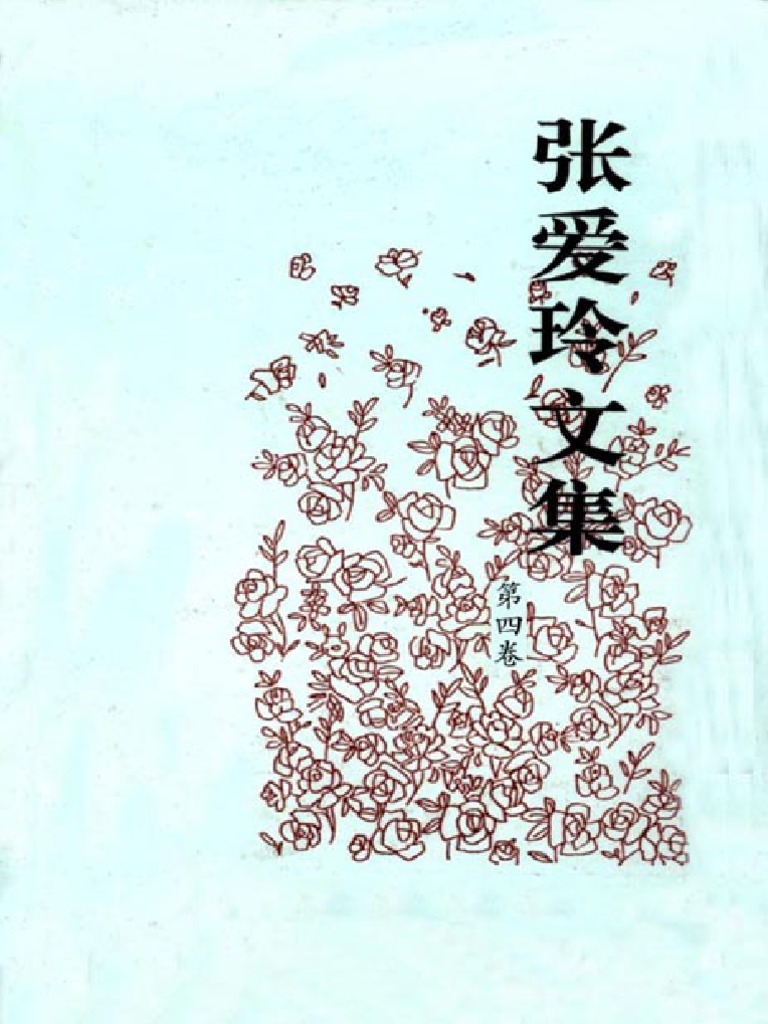 张爱玲文集
第四卷